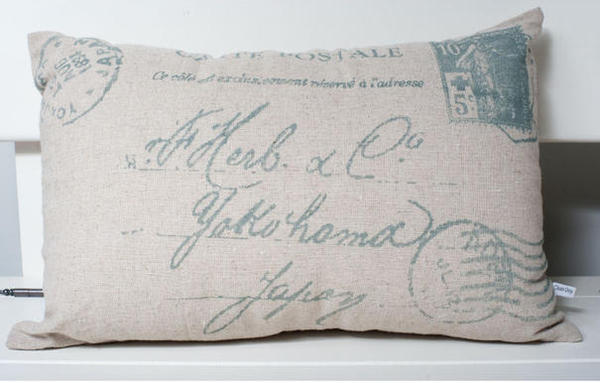 CARTE POSTALE
Ce côté est exclusivement réservé à l'adresse
10c
5c
Herb. & Co
Yokohama
Japan